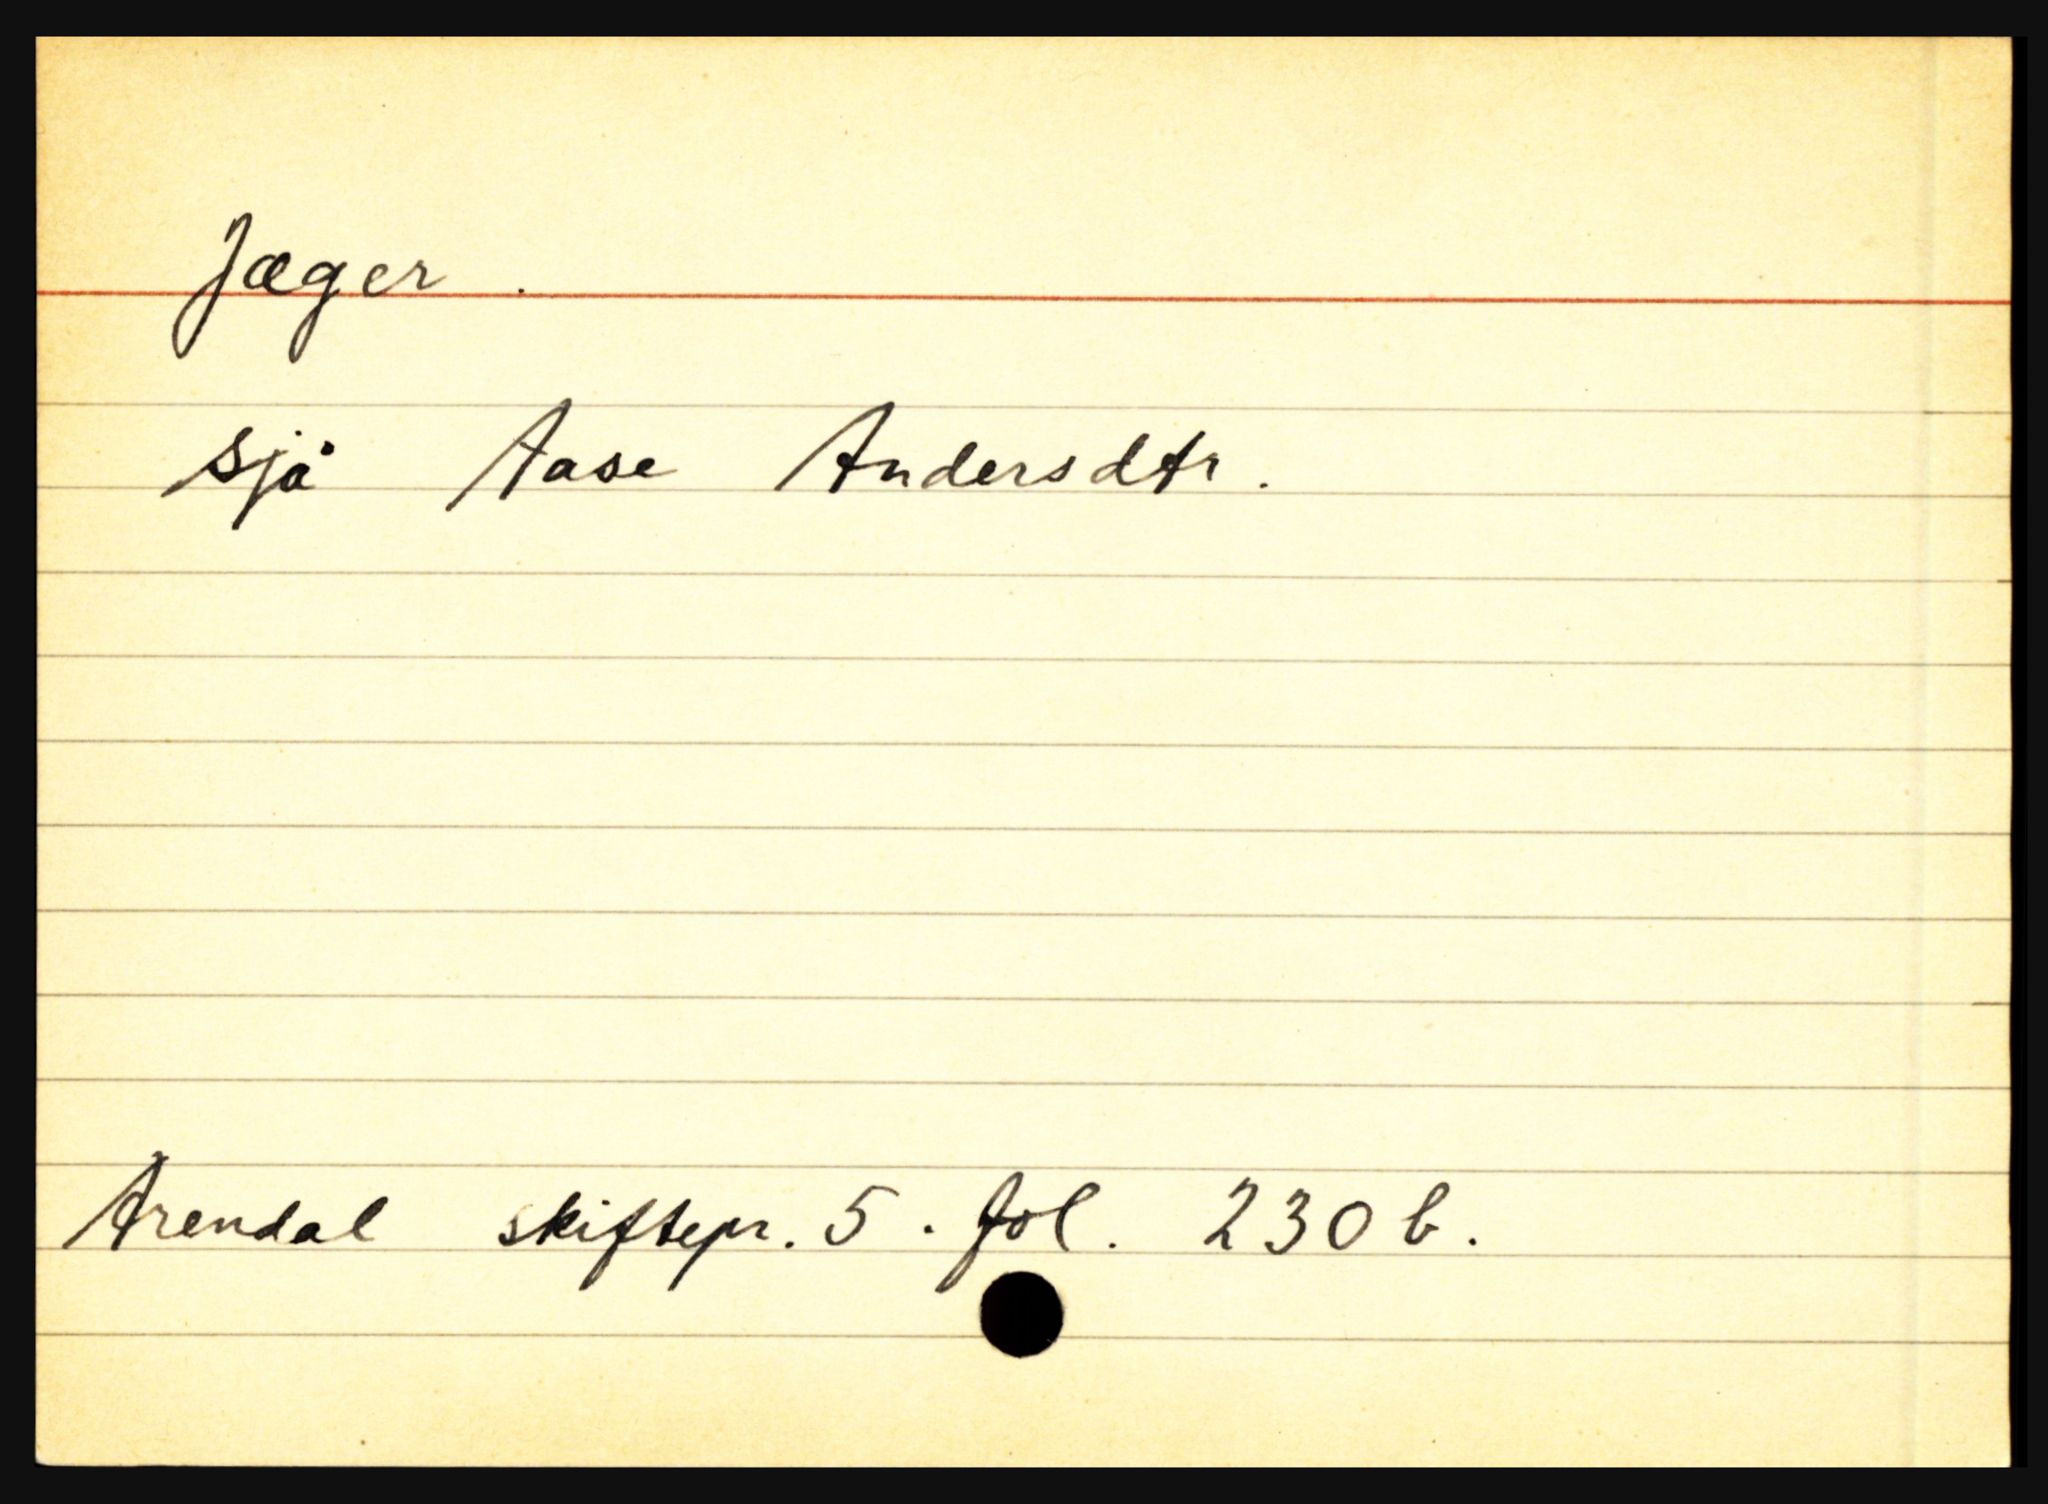 Jæger .
sjå Aase Andersdtr.
Arendal skiftepr. 5. fol. 230 b.